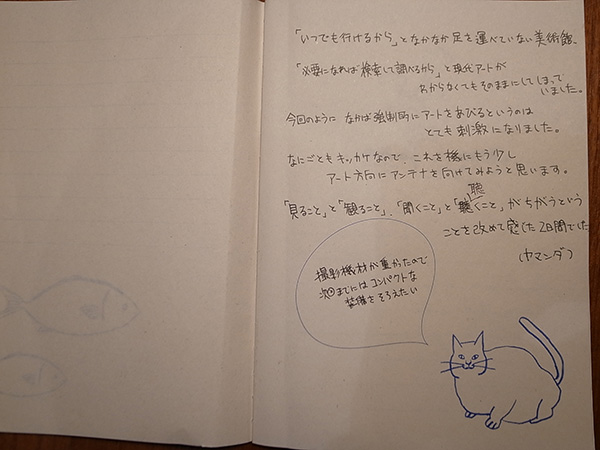 「いつでも行けるから」となかなか足を運べていない美術館、
「必要になれば検索して調べるから」と現代アートが
わからなくてもそのままにしてしまって
いました。
今回のように なかば強制的にアートをあびるというのは
とても刺激になりました。
なにごともキッカケなので、これを機にもう少し
アート方向にアンテナを向けてみようと思います。
「見ること」と「観ること」、「聞くこと」と「聴くこと」がちがうという
ことを改めて感じた2日間でした
(ヤマンダ)
撮影機材が重かったので
次回までにはコンパクトな
装備をそろえたい